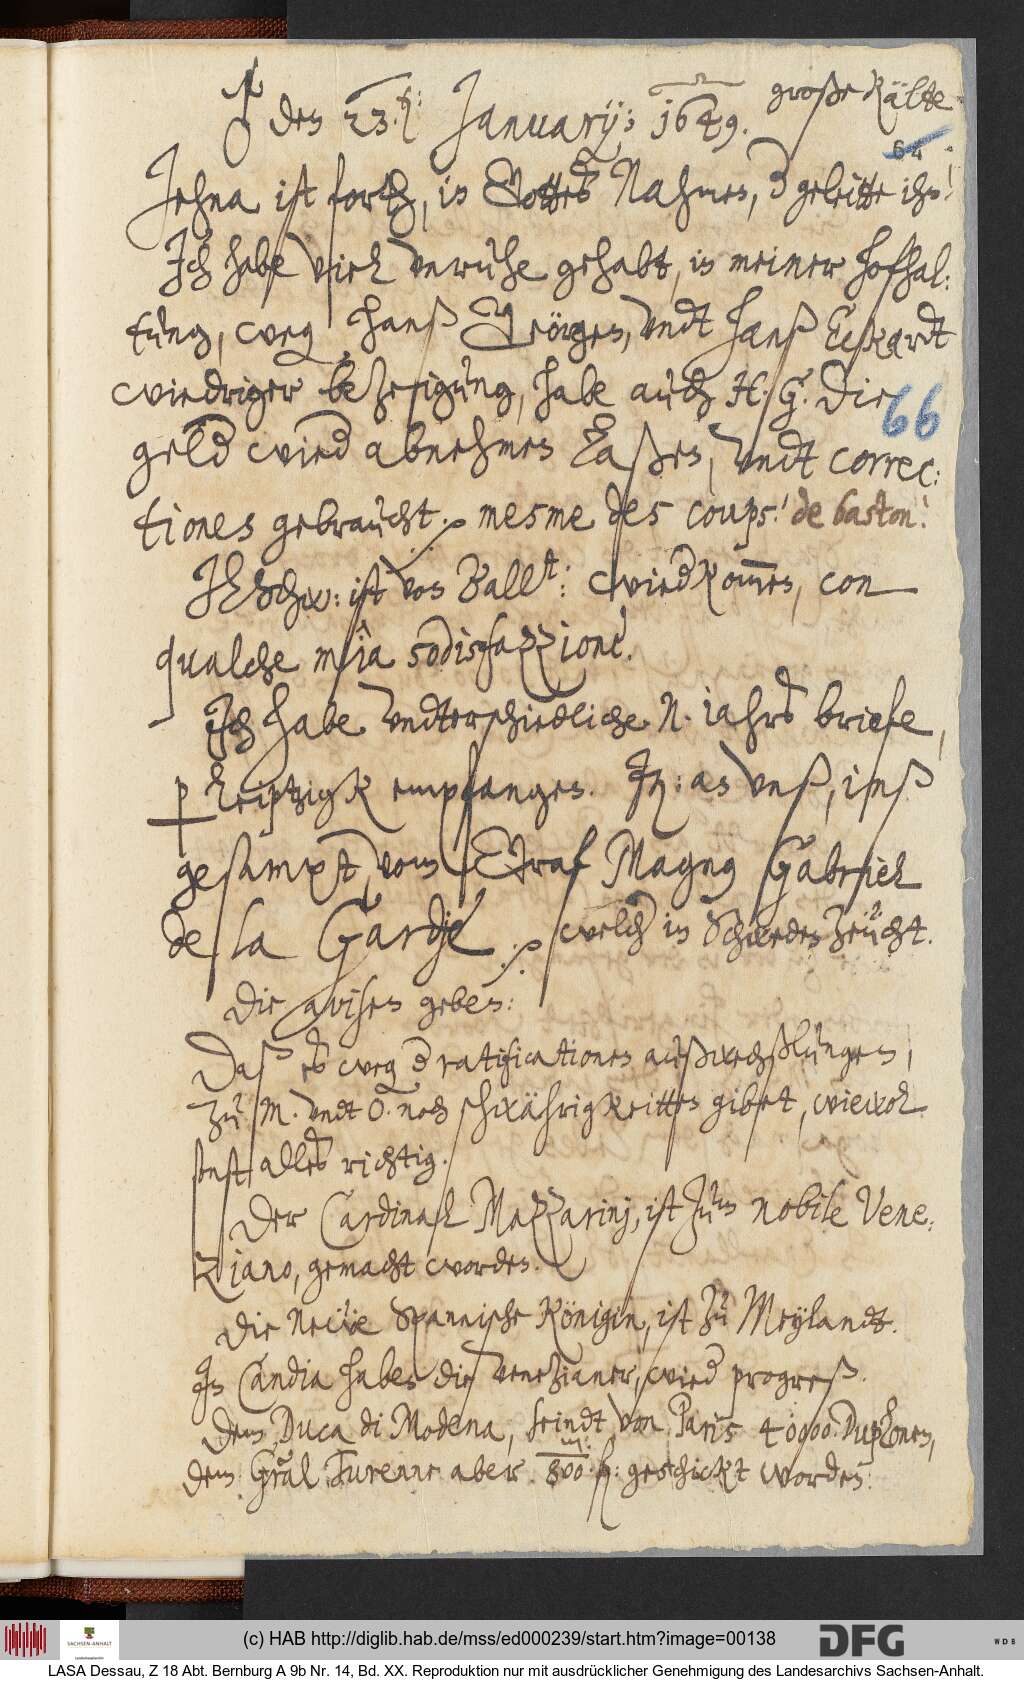 ♂ den 23.ten: January; 1649.
große Kälte
64
Jehna ist forth, in Gottes Nahmen, der geleitte ihn!
Jch habe viel vnruhe gehabt, in meiner hofhal:
tung, wegen Hanß Geörgen, vndt Hanß Eckardt
wiedriger bezeigung, habe auch H. G. die
66
geld wied abnehmen laßen, vndt correc:
tiones gebraucht. mesme des coups! de baston!
Jhschw: ist von Ball: wiedkommen, con
qualche mia sodisfazzione.
Jch habe vndterschiedliche N. iahrs briefe,
p Leiptzigk empfangen. Jt: an vnß, inß
gesampt, vom Graf Magnus Gabriel
de la Gardie. welcher in Schweden zeücht.
Die avisen geben:
Daß es wegen der ratificationen außwechßlungen,
zu M. vndt O. noch schwährigkeitten gibet, wiewol
sonst alles richtig.
Der Cardinal Mazzarinj, ist zum nobile Vene:
ziano, gemacht worden.
Die Neüe Spannische Königin, ist zu Meylandt.
Jn Candia haben die Venezianer, wied progreß.
Dem Duca di Modena, seindt von Paris 40000 Duplonen,
dem Gral Turenne aber 800 geschickt worden.
(c) HAB http://diglib.hab.de/mss/ed000239/start.htm?image=00138
SACHSEN-ANHALT
DFG
WDB
LASA Dessau, Z 18 Abt. Bernburg A 9b Nr. 14, Bd. XX. Reproduktion nur mit ausdrücklicher Genehmigung des Landesarchivs Sachsen-Anhalt.